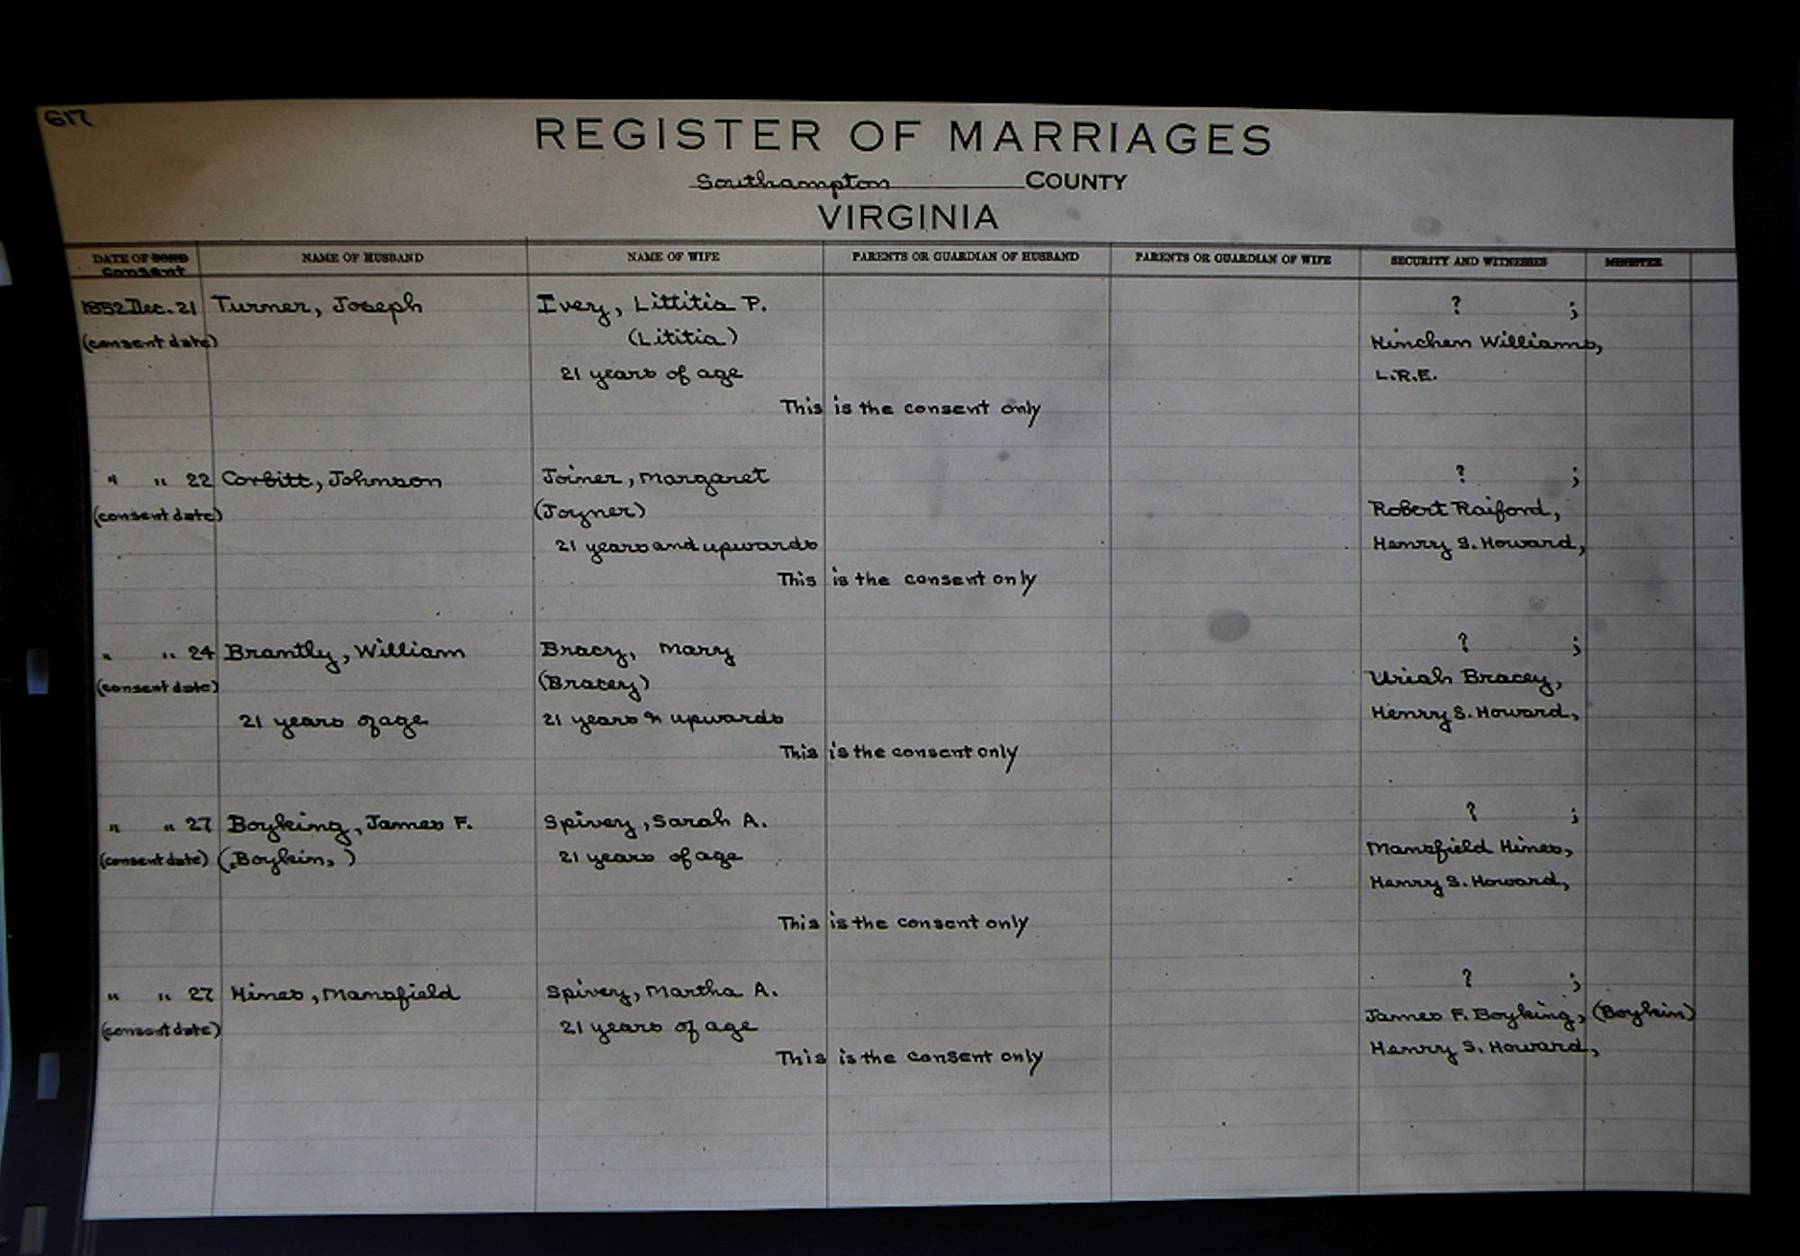 617
REGISTER OF MARRIAGES
Southampton COUNTY
VIRGINIA
DATE OF BOND NAME OF HUSBAND NAME OF WIFE PARENTS OR GUARDIAN OF HUSBAND PARENTS OR GUARDIAN OF WIFE SECURITY AND WITNESSES MINISTER
Consent
1852 Dec. 21 Turner, Joseph Ivey, Littitia P. ? ;
(consent date) (Lititia) Kinchen Williams,
21 years of age L.R.E.
This is the consent only
" " 22 Corbitt, Johnson Joiner, Margaret ? ;
(consent date) (Joyner) Robert Raiford,
21 years and upwards Henry S. Howard,
This is the consent only
" " 24 Brantly, William Bracy, Mary ? ;
(consent date) (Bracey) Uriah Bracey,
21 years of age 21 years & upwards Henry S. Howard,
This is the consent only
" " 27 Boyking, James F. Spivey, Sarah A. ? ;
(consent date) (Boykin,) 21 years of age Mansfield Hines,
Henry S. Howard,
This is the consent only
" " 27 Hines, Mansfield Spivey, Martha A. ? ;
(consent date) 21 years of age James F. Boyking, (Boykin)
This is the consent only Henry S. Howard,